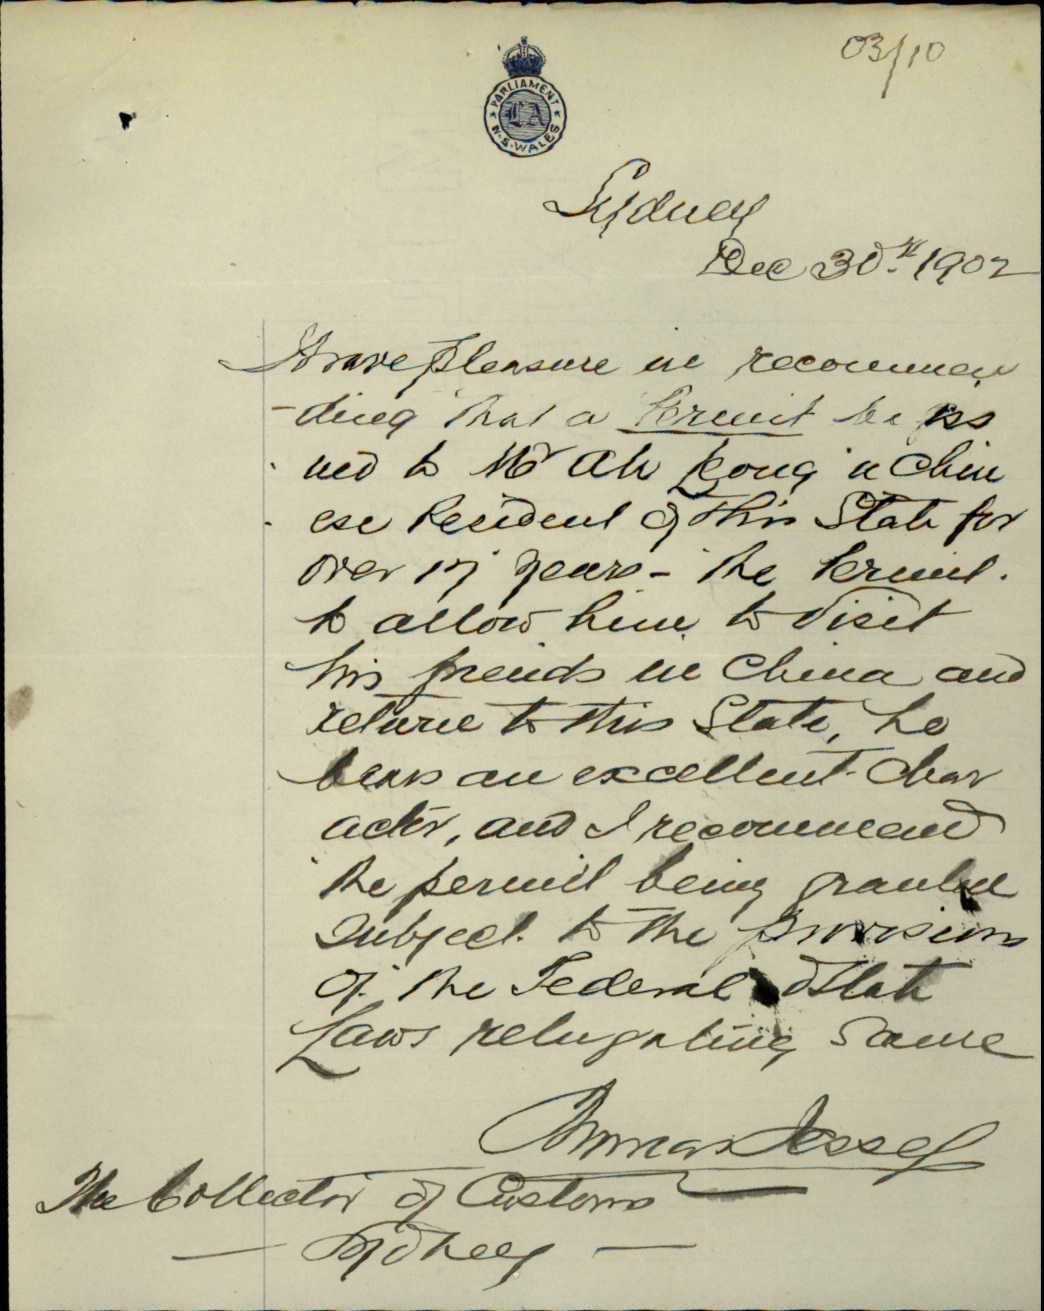 03/10
PARLIAMENT
LA
N.S.WALES
Sydney
Dec 30th 1902
I have pleasure in recommen
-ding that a Permit be iss
ued to Mr Ah Kong a Chin
ese Resident of this State for
over 17 years - the Permit.
to allow him to visit
his friends in China and
return to this State, he
bears an excellent char
acter, and I recommend
the permit being granted
Subject to the provisions
of the Federal & State
Laws relugating Same
Thomas Jessep
The Collector of Customs
— Sydney —